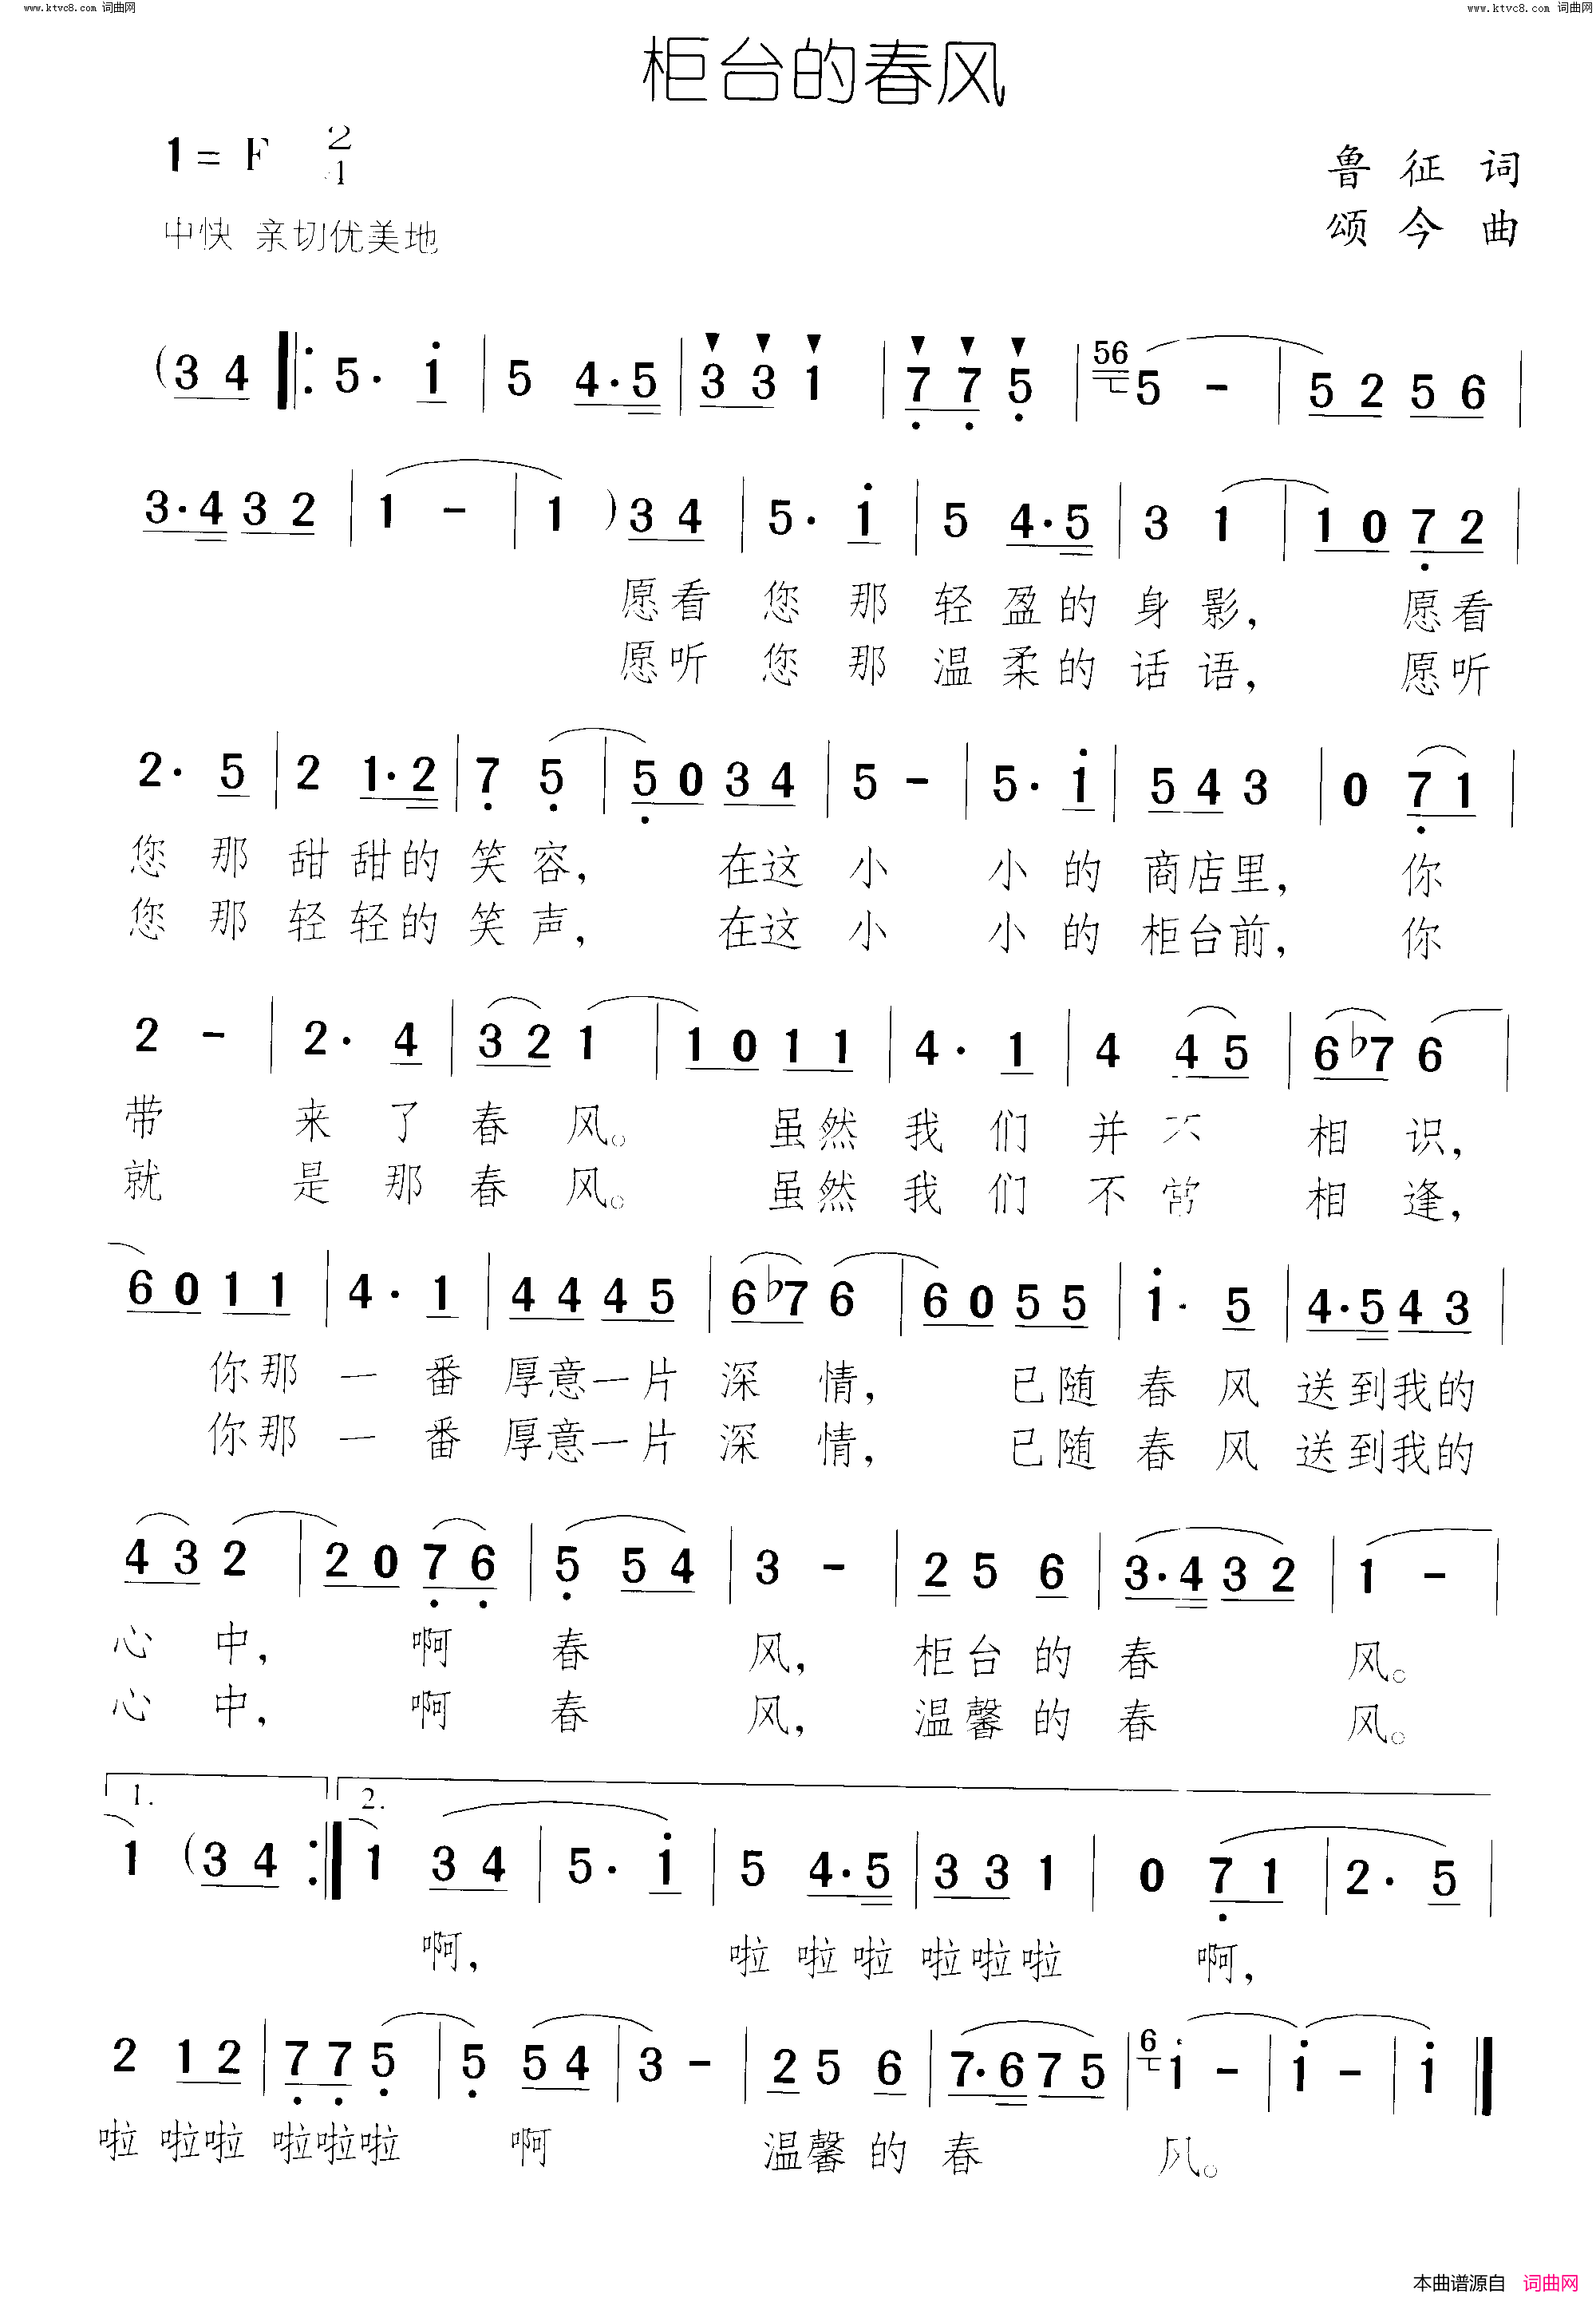 www.ktvc8.com 词曲网 www.ktvc8.com 词曲网
柜台的春风
1= F 2/4
鲁征 词
中快 亲切优美地
颂今 曲
(3 4 ‖: 5· i | 5 4·5 | 3 3 1 | 7 7 5 | 56 5 - | 5 2 5 6 |
3·4 3 2 | 1 - | 1 ) 3 4 | 5· i | 5 4·5 | 3 1 | 1 0 7 2 |
愿看 您 那 轻 盈的 身 影, 愿看
愿听 您 那 温 柔的 话 语, 愿听
2· 5 | 2 1·2 | 7 5 | 5 0 3 4 | 5 - | 5· i | 5 4 3 | 0 7 1 |
您 那 甜 甜的 笑 容, 在这 小 小 的 商店里, 你
您 那 轻 轻的 笑 声, 在这 小 小 的 柜台前, 你
2 - | 2· 4 | 3 2 1 | 1 0 1 1 | 4· 1 | 4 4 5 | 6 ♭7 6 |
带 来 了 春 风。 虽然 我 们 并 不 相 识,
就 是 那 春 风。 虽然 我 们 不 常 相 逢,
6 0 1 1 | 4· 1 | 4 4 4 5 | 6 ♭7 6 | 6 0 5 5 | i· 5 | 4·5 4 3 |
你那 一 番 厚意一片 深 情, 已随 春 风 送到我的
你那 一 番 厚意一片 深 情, 已随 春 风 送到我的
4 3 2 | 2 0 7 6 | 5 5 4 | 3 - | 2 5 6 | 3·4 3 2 | 1 - |
心 中, 啊 春 风, 柜台 的 春 风。
心 中, 啊 春 风, 温馨 的 春 风。
1. 2.
1 (3 4 :‖ 1 3 4 | 5· i | 5 4·5 | 3 3 1 | 0 7 1 | 2· 5 |
啊, 啦 啦啦 啦啦啦 啊,
2 1 2 | 7 7 5 | 5 5 4 | 3 - | 2 5 6 | 7·6 7 5 | 6 i - | i - | i ‖
啦 啦啦 啦啦啦 啊 温馨 的 春 风。
本曲谱源自 词曲网